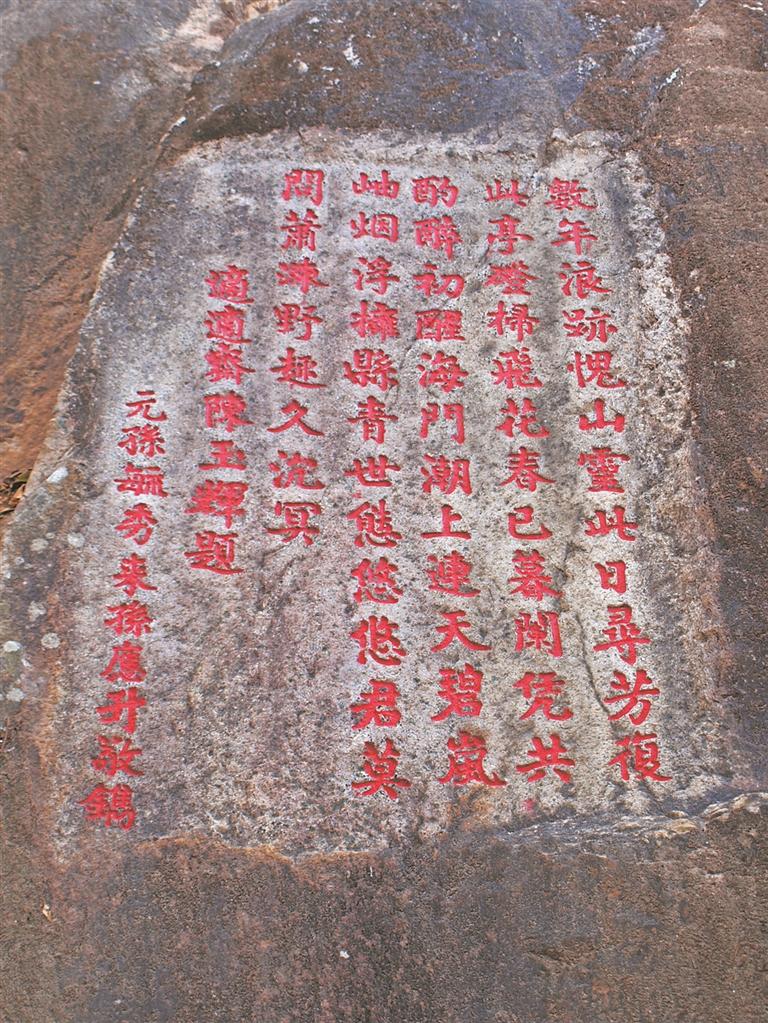 數年浪跡愧山靈此日尋芳復
此亭磴掃飛花春已暮闌凭共
酌醉初醒海門潮上連天碧嵐
岫烟浮擁縣青世態悠悠君莫
問蕭疎野趣久沈冥
適適齋陳玉輝題
元孫毓秀來孫鷹升敬鐫